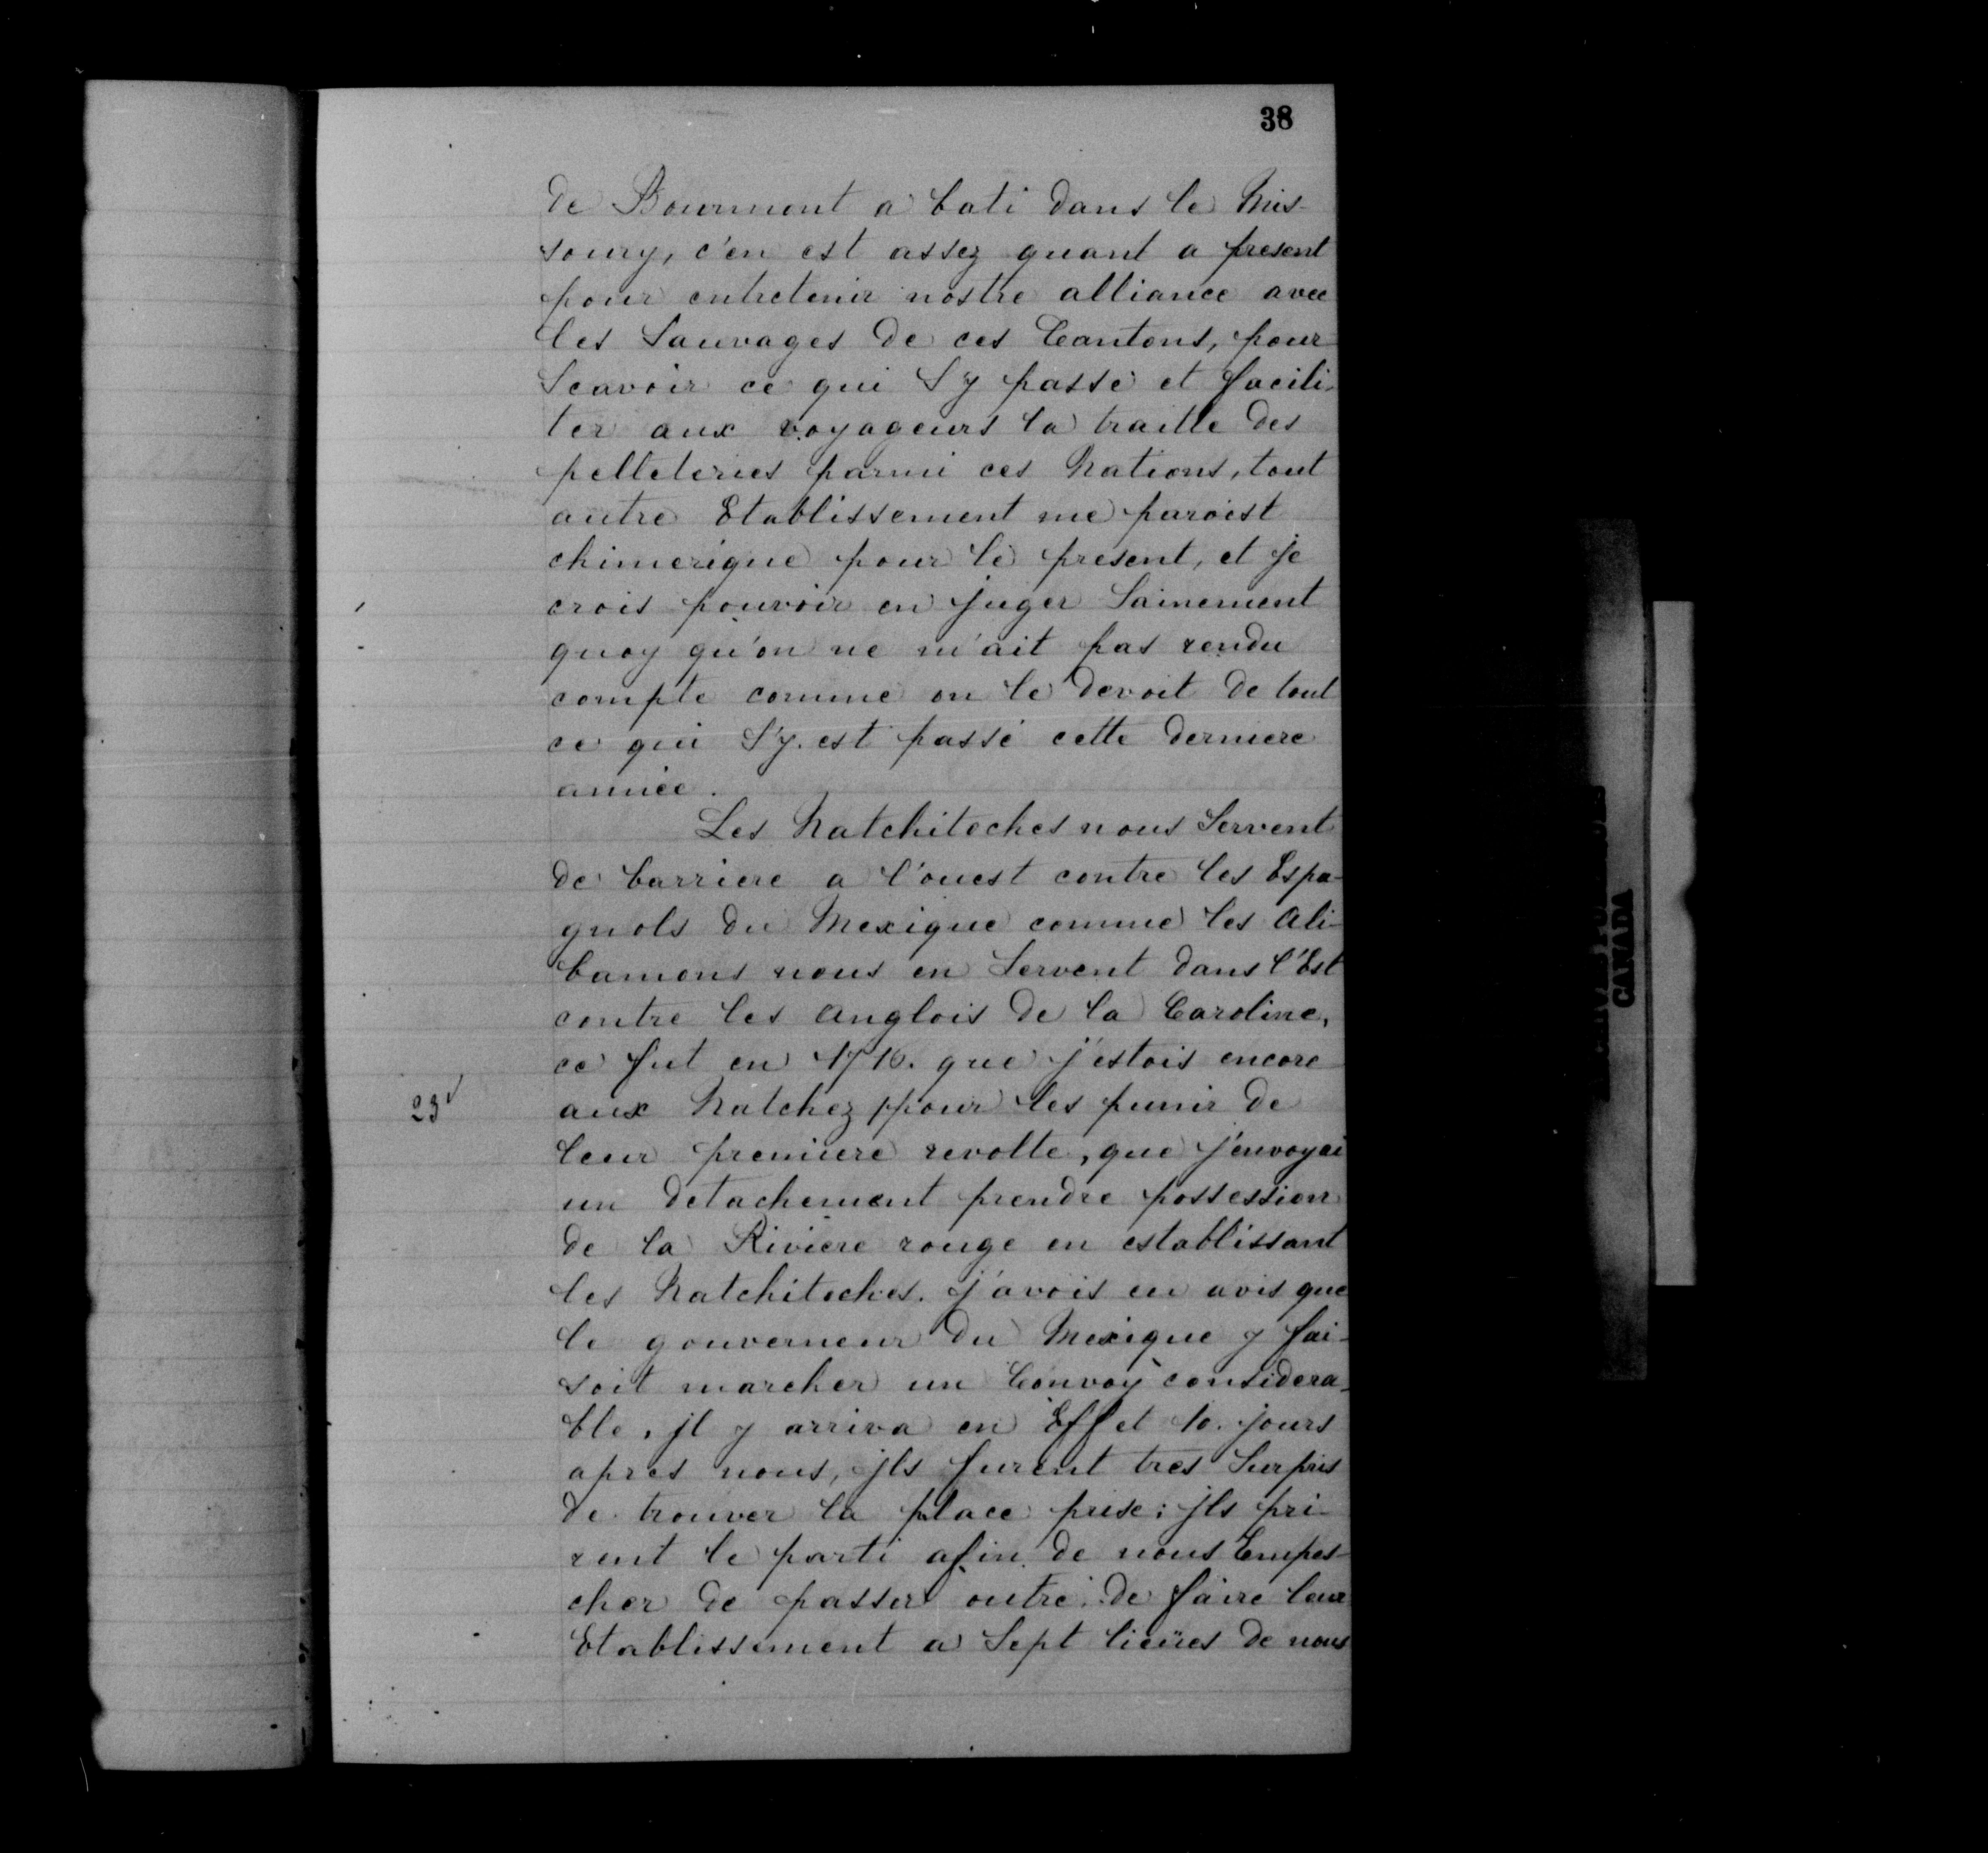 38
de Bourmont a bati dans le Mis-
soury, c'en est assez quant a present
pour entretenir nostre alliance avec
les Sauvages de ces Cantons, pour
Scavoir ce qui S'y passe et facili-
ter aux voyageurs la traitte des
pelleteries parmi ces Nations, tout
autre Etablissement me paroist
chimerique pour le present, et je
crois pouvoir en juger Sainement
quoy qu'on ne m'ait pas rendu
compte comme on le devoit de tout
ce qui S'y est passé cette derniere
année.
Les Natchitoches nous Servent
de barriere a l'ouest contre les Espa-
gnols du Mexique comme les Ali-
bamons nous en Servent dans l'Est
contre les Anglois de la Caroline,
ce fut en 1716. que j'estois encore
23v aux Natchez pour les punir de
leur premiere revolte, que j'envoyai
un detachement prendre possession
de la Riviere rouge en establissant
les Natchitoches. j'avois eu avis que
le gouverneur du Mexique y fai-
soit marcher un Convoy considera-
ble, jl y arriva en Effet 10. jours
apres nous, jls furent tres Surpris
de trouver la place prise; jls pri-
rent le parti afin de nous Empes-
cher de passer outre de faire leur
Etablissement a Sept lieües de nous
CANADA